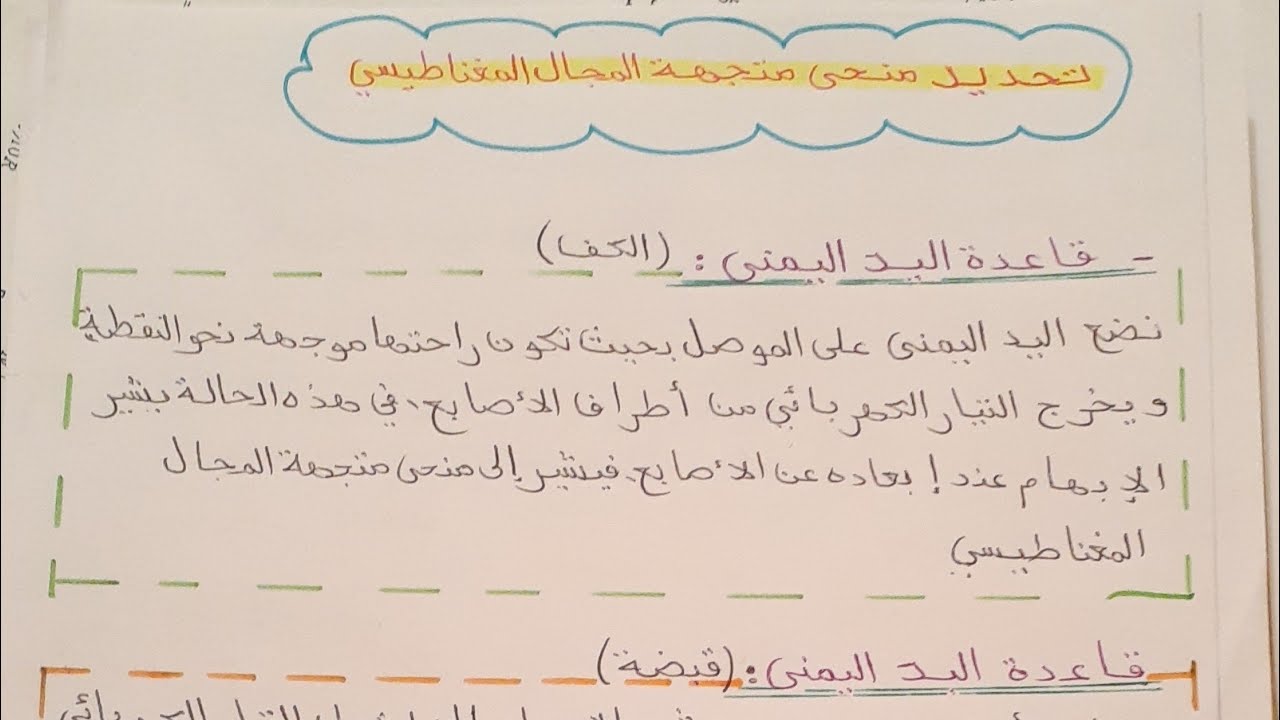 تحديد منحى متجهة المجال المغناطيسي
- قاعدة اليد اليمنى : (الكف)
نضع اليد اليمنى على الموصل بحيث تكون راحتها موجهة نحو النقطة
ويخرج التيار الكهربائي من أطراف الأصابع، في هذه الحالة يشير
الإبهام عند إبعاده عن الأصابع، فيشير إلى منحى متجهة المجال
المغناطيسي
قاعدة اليد اليمنى : (قبضة)